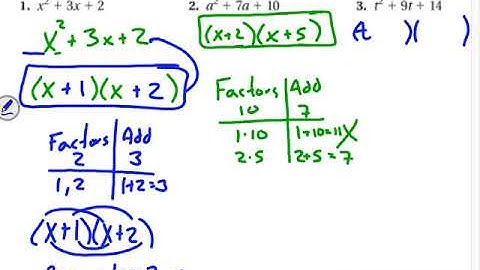 1. x² + 3x + 2
x² + 3x + 2
(x + 1)(x + 2)
Factors | Add
2 | 3
1, 2 | 1+2=3
(x+1)(x+2)
2. a² + 7a + 10
(x+2)(x+5)
Factors | Add
10 | 7
1·10 | 1+10=11 X
2·5 | 2+5=7
3. t² + 9t + 14
(t )( )